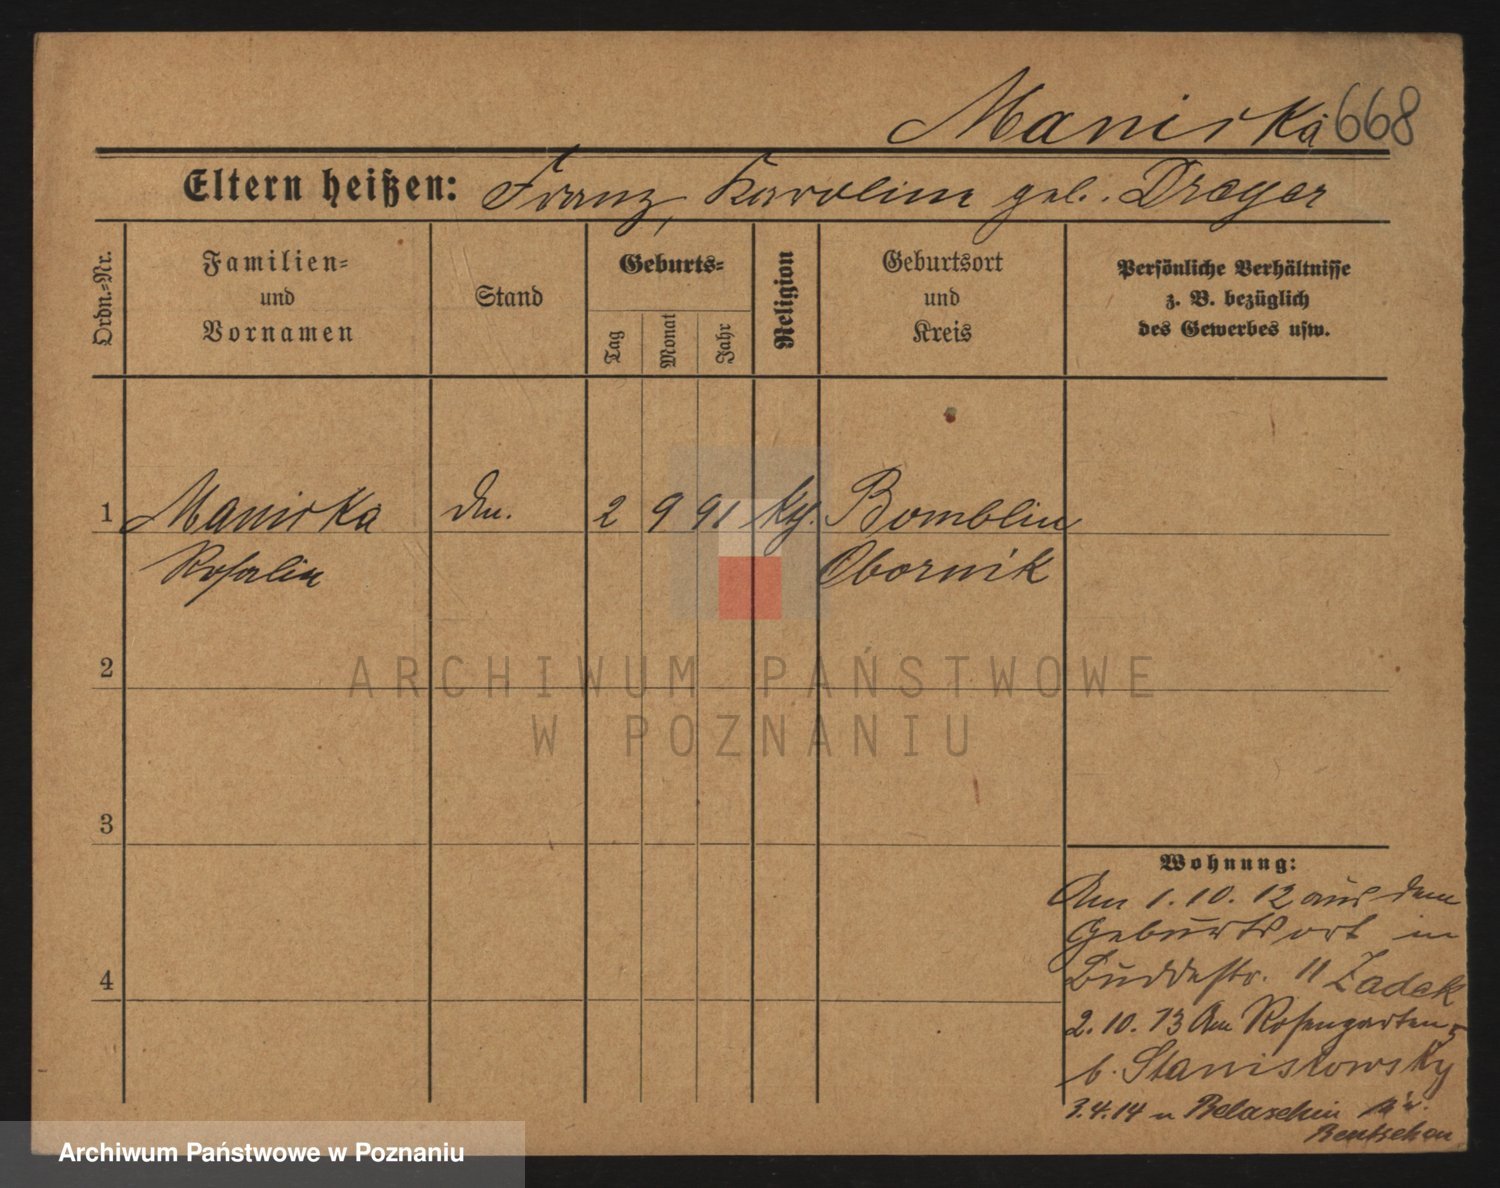 Manirka 668
Eltern heißen: Franz, Karolin geb. Dreger
Ordn.=Nr.
Familien=
und
Vornamen
Stand
Geburts=
Tag
Monat
Jahr
Religion
Geburtsort
und
Kreis
Persönliche Verhältnisse
z. B. bezüglich
des Gewerbes usw.
1 Manirka 2 9 91 Bomblin
Rosalin Obornik
2
3
4
Wohnung:
Am 1. 10. 12 aus dem
Geburtsort in
Buddestr. 11 Zadek
2. 10. 13 Am Rosengarten 5
b. Staniskowsky
3.4.14 n
Bentschen
ARCHIWUM PAŃSTWOWE
W POZNANIU
Archiwum Państwowe w Poznaniu